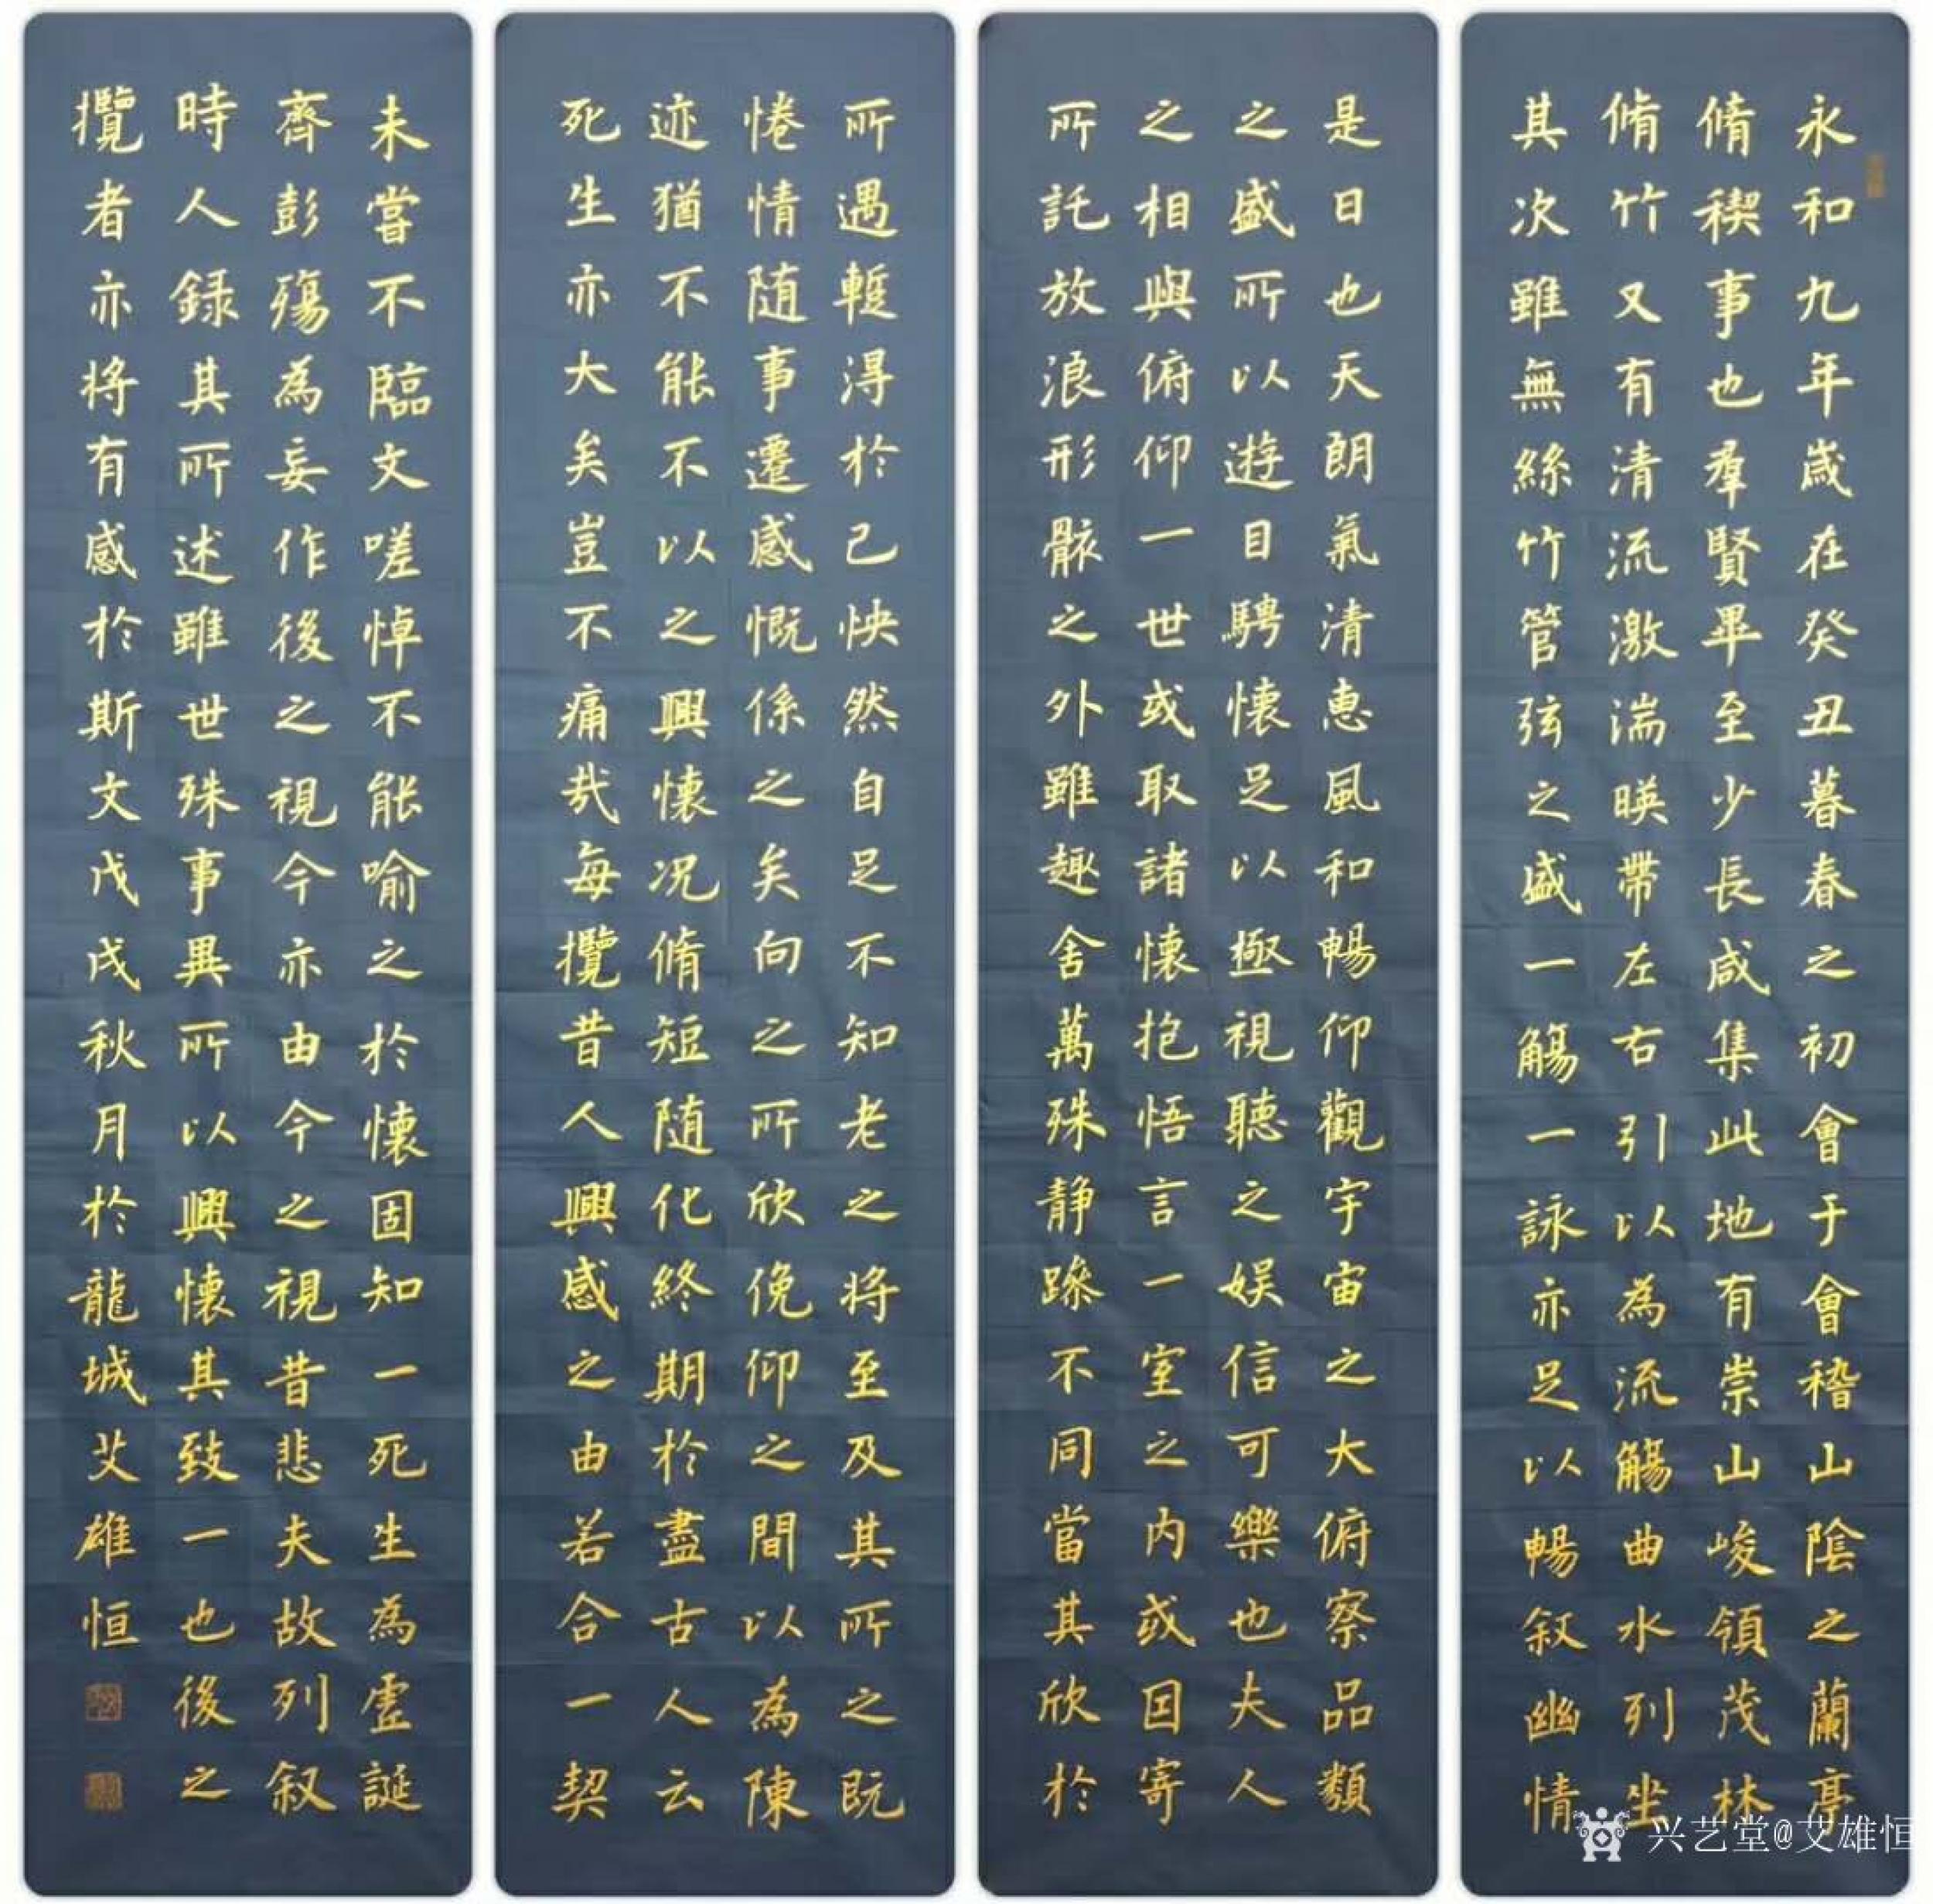 永和九年歲在癸丑暮春之初會于會稽山陰之蘭亭
脩稧事也羣賢畢至少長咸集此地有崇山峻領茂林
脩竹又有清流激湍暎帶左右引以為流觴曲水列坐
其次雖無絲竹管弦之盛一觴一詠亦足以暢叙幽情
是日也天朗氣清惠風和暢仰觀宇宙之大俯察品類
之盛所以遊目騁懷足以極視聽之娛信可樂也夫人
之相與俯仰一世或取諸懷抱悟言一室之内或因寄
所託放浪形骸之外雖趣舍萬殊静躁不同當其欣於
所遇蹔得於己怏然自足不知老之将至及其所之既
惓情随事遷感慨係之矣向之所欣俛仰之間以為陳
迹猶不能不以之興懷况脩短随化終期於盡古人云
死生亦大矣豈不痛哉每攬昔人興感之由若合一契
未嘗不臨文嗟悼不能喻之於懷固知一死生為虛誕
齊彭殤為妄作後之視今亦由今之視昔悲夫故列叙
時人録其所述雖世殊事異所以興懷其致一也後之
攬者亦将有感於斯文戊戌秋月於龍城艾雄恒
兴艺堂@艾雄恒